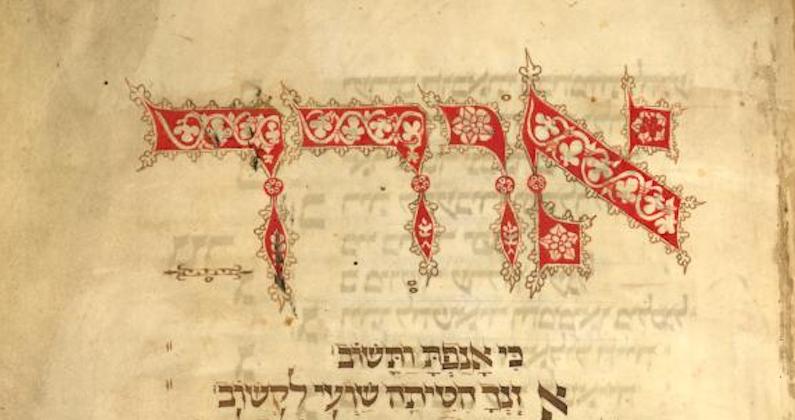 אודך
כִּי אָנַפְתָּ וַתָּשׁוֹב
אזנך הטיתה שועי לקשוב